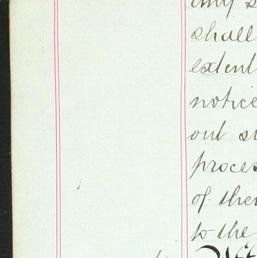 any s
shall
extent
notice
out su
proces
of ther
to the